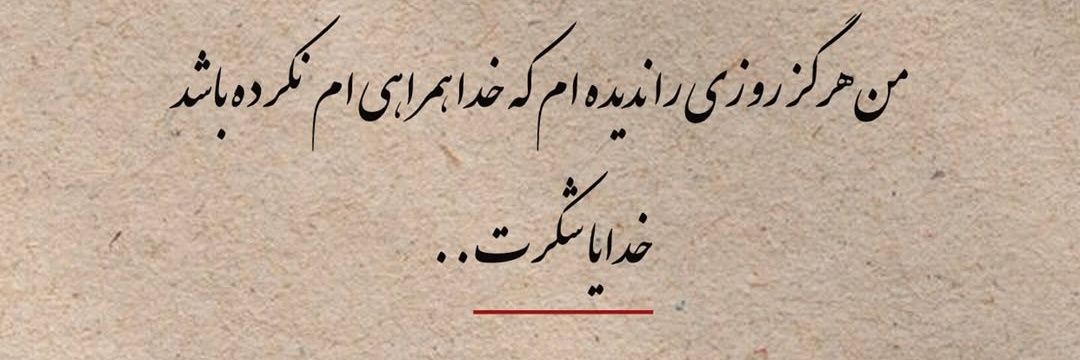 من هرگز روزی را ندیده ام که خدا همراهی ام نکرده باشد
خدایا شکرت..